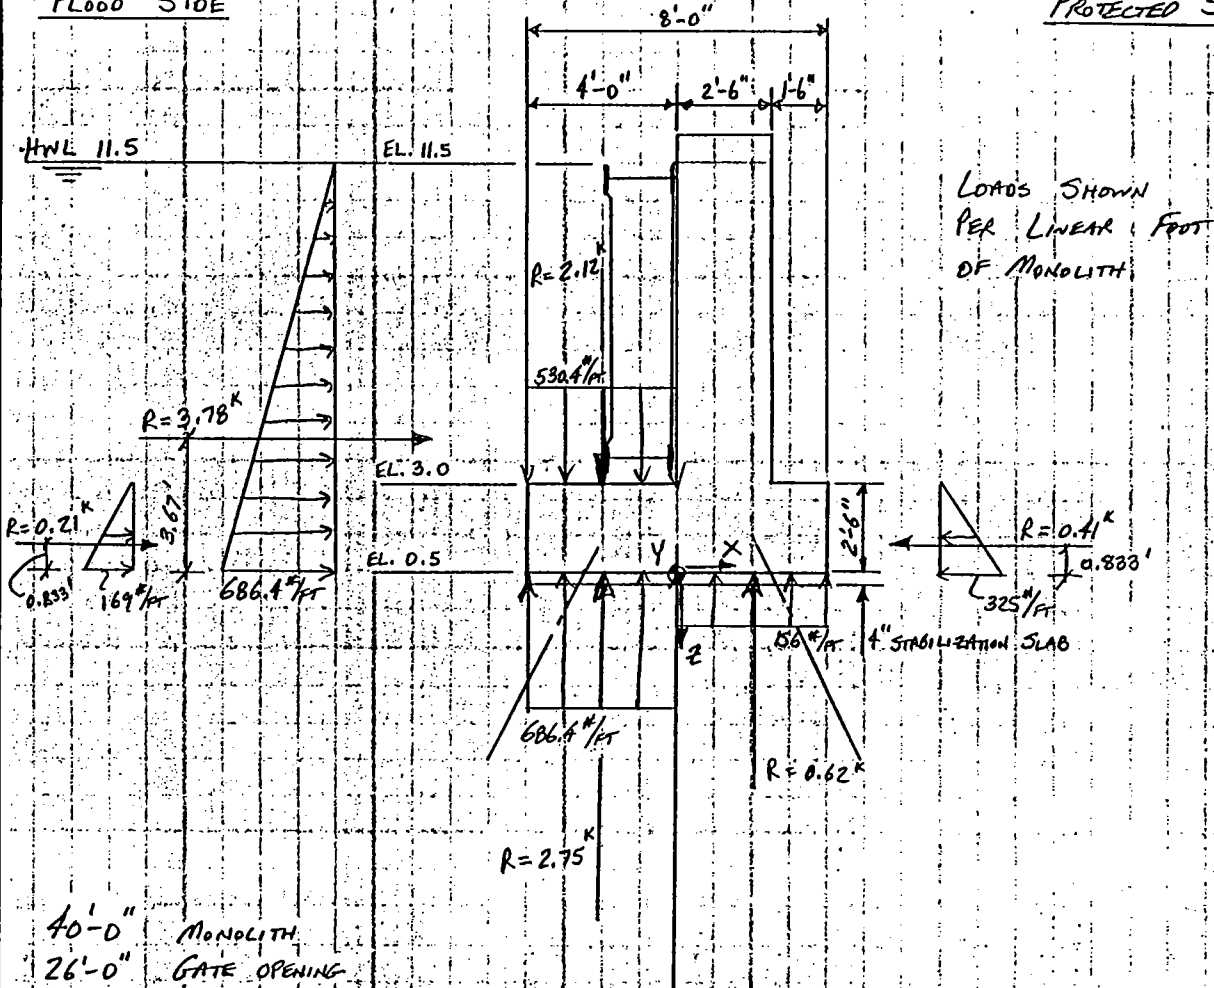 FLOOD SIDE
PROTECTED S
8'-0"
4'-0"
2'-6"
1'-6"
HWL 11.5
EL. 11.5
LOADS SHOWN
PER LINEAR FOOT
OF MONOLITH
R=2.12ᴷ
530.4#/FT.
R=3.78ᴷ
3.67'
EL. 3.0
2'-6"
R=0.21ᴷ
0.833'
169#/FT
686.4#/FT
EL. 0.5
Y
X
Z
R=0.41ᴷ
0.833'
325#/FT
156#/FT
4" STABILIZATION SLAB
686.4#/FT
R=0.62ᴷ
R=2.75ᴷ
40'-0" MONOLITH
26'-0" GATE OPENING